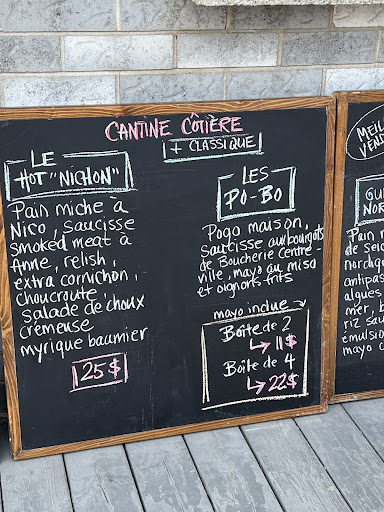 CANTINE CÔTIÈRE
+ CLASSIQUE
LE
HOT "NICHON"
Pain miche à
Nico, saucisse
smoked meat à
Anne, relish,
extra cornichon,
choucroute,
salade de choux
crémeuse
myrique baumier
25$
LES
PO-BO
Pogo maison,
saucisse aux bourgots
de Boucherie Centre-
ville, mayo au miso
et oignons frits
mayo inclue
Boîte de 2
↳ 11$
Boîte de 4
↳ 22$
MEILL
VEND
GU
NOR
Pain n
de Sei
nordiq
antipas
algues
mer, b
riz sau
émulsion
mayo c